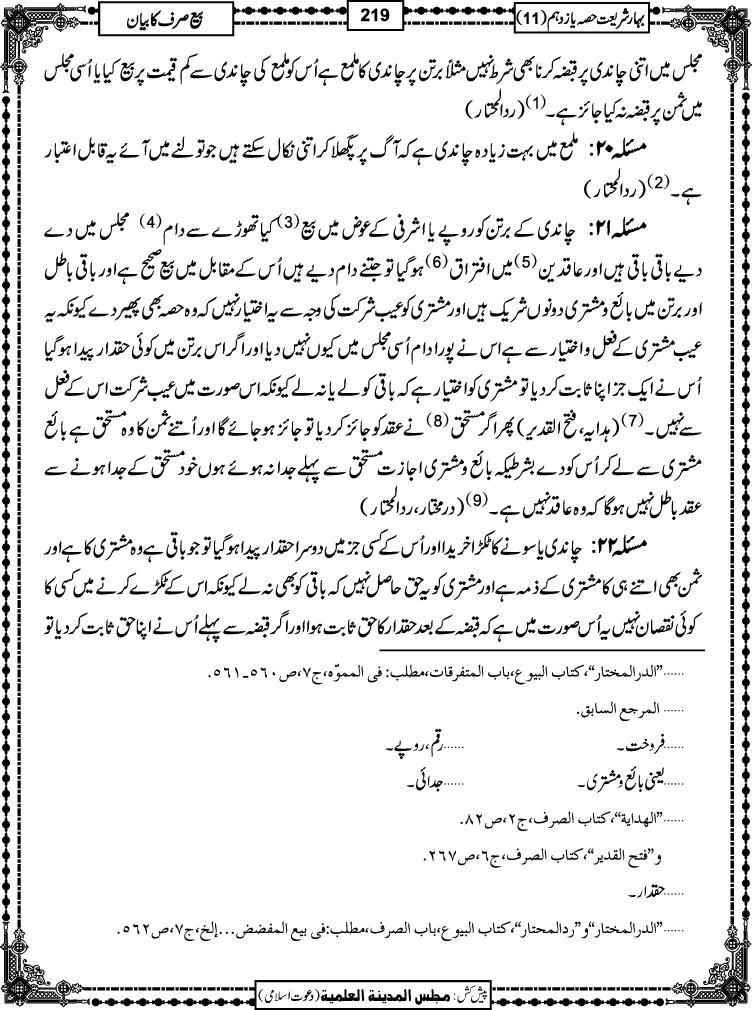 بہار شریعت حصہ یازدہم (11)
219
بیع صرف کا بیان
مجلس میں اتنی چاندی پر قبضہ کرنا بھی شرط نہیں مثلاً برتن پر چاندی کا ملمع ہے اُس کو ملمع کی چاندی سے کم قیمت پر بیع کیا یا اُسی مجلس
میں ثمن پر قبضہ نہ کیا جائز ہے۔(1) (ردالمحتار)
مسئلہ ۲۰: ملمع میں بہت زیادہ چاندی ہے کہ آگ پر پگھلا کر اتنی نکال سکتے ہیں جو تولنے میں آئے یہ قابل اعتبار
ہے۔(2) (ردالمحتار)
مسئلہ ۲۱: چاندی کے برتن کو روپے یا اشرفی کے عوض میں بیع(3) کیا تھوڑے سے دام(4) مجلس میں دے
دیے باقی باقی ہیں اور عاقدین(5) میں افتراق(6) ہوگیا تو جتنے دام دیے ہیں اُس کے مقابل میں بیع صحیح ہے اور باقی باطل
اور برتن میں بائع و مشتری دونوں شریک ہیں اور مشتری کو عیب شرکت کی وجہ سے یہ اختیار نہیں کہ وہ حصہ بھی پھیر دے کیونکہ یہ
عیب مشتری کے فعل و اختیار سے ہے اس نے پورا دام اُسی مجلس میں کیوں نہیں دیا اور اگر اس برتن میں کوئی حقدار پیدا ہوگیا
اُس نے ایک جز اپنا ثابت کردیا تو مشتری کو اختیار ہے کہ باقی کو لے یا نہ لے کیونکہ اس صورت میں عیب شرکت اس کے فعل
سے نہیں۔(7) (ہدایہ، فتح القدیر) پھر اگر مستحق(8) نے عقد کو جائز کردیا تو جائز ہوجائے گا اور اُتنے ثمن کا وہ مستحق ہے بائع
مشتری سے لے کر اُس کو دے بشرطیکہ بائع و مشتری اجازت مستحق سے پہلے جدا نہ ہوئے ہوں خود مستحق کے جدا ہونے سے
عقد باطل نہیں ہوگا کہ وہ عاقد نہیں ہے۔(9) (درمختار، ردالمحتار)
مسئلہ ۲۲: چاندی یا سونے کا ٹکڑا خریدا اور اُس کے کسی جز میں دوسرا حقدار پیدا ہوگیا تو جو باقی ہے وہ مشتری کا ہے اور
ثمن بھی اتنے ہی کا مشتری کے ذمہ ہے اور مشتری کو یہ حق حاصل نہیں کہ باقی کو بھی نہ لے کیونکہ اس کے ٹکڑے کرنے میں کسی کا
کوئی نقصان نہیں یہ اُس صورت میں ہے کہ قبضہ کے بعد حقدار کا حق ثابت ہوا اور اگر قبضہ سے پہلے اُس نے اپنا حق ثابت کردیا تو
......”الدرالمختار“،کتاب البیوع،باب المتفرقات،مطلب: فی المموّہ،ج۷،ص۵۶۰۔۵۶۱.
...... المرجع السابق.
......فروخت۔ ......رقم،روپے۔
......یعنی بائع و مشتری۔ ......جدائی۔
......”الھدایة“،کتاب الصرف،ج۲،ص۸۲.
و”فتح القدیر“،کتاب الصرف،ج۶،ص۲۶۷.
......حقدار۔
......”الدرالمختار“و”ردالمحتار“،کتاب البیوع،باب الصرف،مطلب:فی بیع المفضض...إلخ،ج۷،ص۵۶۲.
پیش کش: مجلس المدینة العلمیة (دعوت اسلامی)